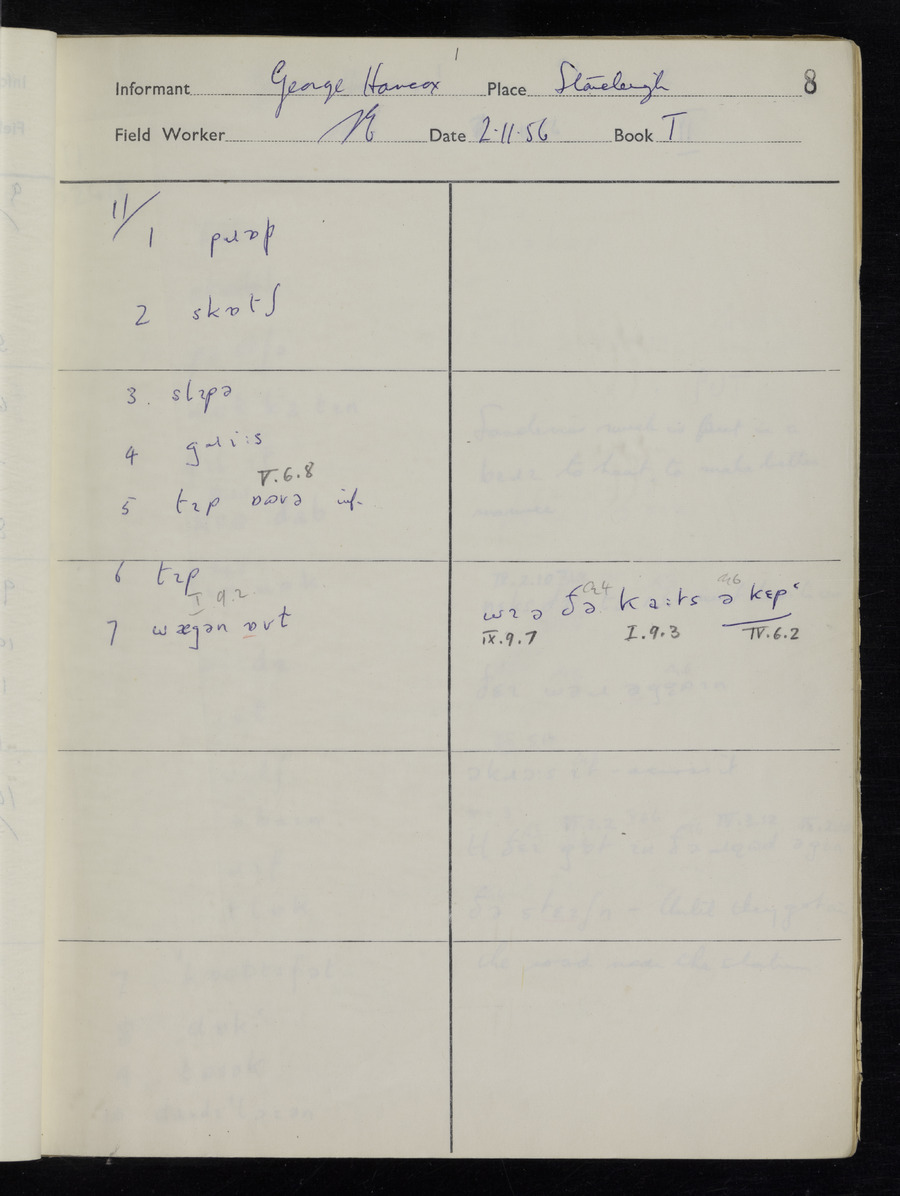 Informant George Hancox Place Stoneleigh 8
Field Worker Date 2·11·56 Book I
11/
1 pɹɒp
2 skɒtʃ
3. slɪpə
4 gɹiːs
V.6.8
5 tɪp ɒʊvə inf.
6 tɪp
I 9.2
7 wægən ɒʊt
ðə kaːts ə kɛp
IX.9.7 I.9.3 IV.6.2